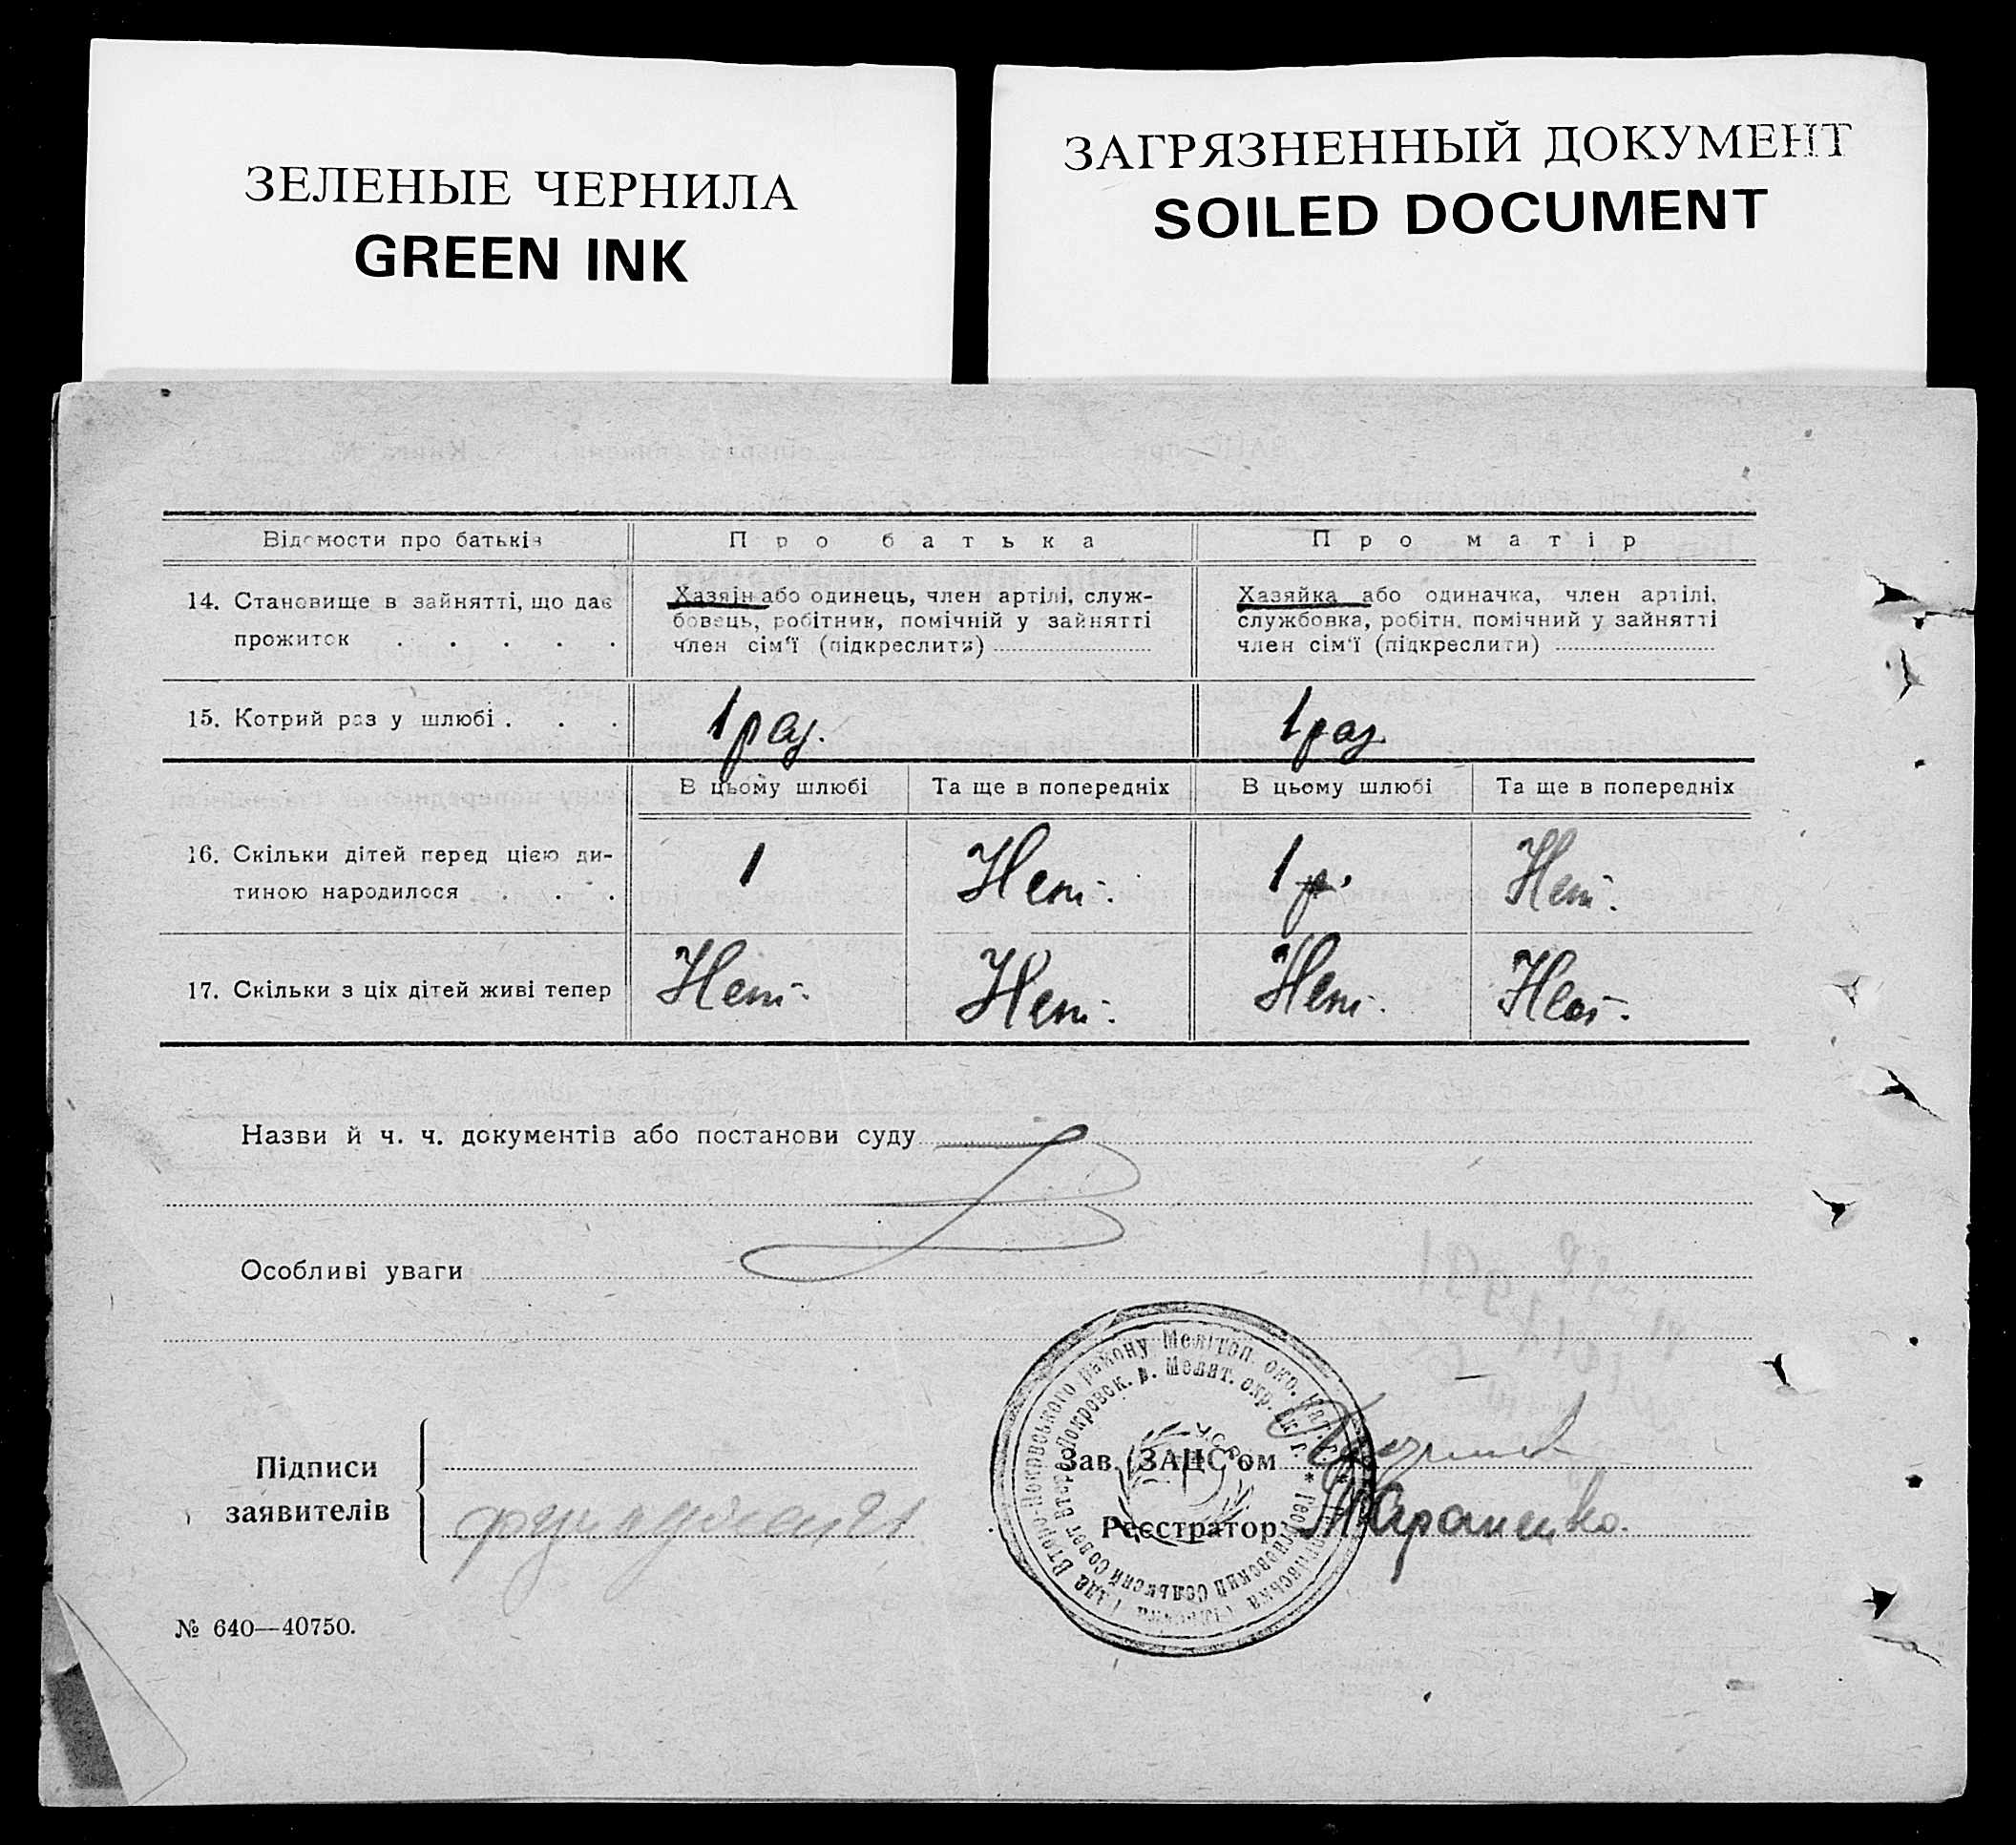 ЗЕЛЕНЫЕ ЧЕРНИЛА
GREEN INK
ЗАГРЯЗНЕННЫЙ ДОКУМЕНТ
SOILED DOCUMENT
Відомости про батьків
Про батька
Про матір
14. Становище в зайнятті, що дає
прожиток . . . . .
Хазяїн або одинець, член артілі, служ-
бовець, робітник, помічній у зайнятті
член сім'ї (підкреслити)
Хазяйка або одиначка, член артілі,
службовка, робітн. помічний у зайнятті
член сім'ї (підкреслити)
15. Котрий раз у шлюбі . . .
1 раз.
1 раз.
В цьому шлюбі
Та ще в попередніх
В цьому шлюбі
Та ще в попередніх
16. Скільки дітей перед цією ди-
тиною народилося . . .
1
Нет.
1 р.
Нет.
17. Скільки з ціх дітей живі тепер
Нет.
Нет.
Нет.
Нет.
Назви й ч. ч. документів або постанови суду
Особливі уваги
Підписи
заявителів
Зав. ЗАЦС'ом
Реєстратор
Вторo-Покрвського району Мелітоп. окр.
Покровск. р. Мелит. окр.
У.С.Р.Р.
№ 640—40750.